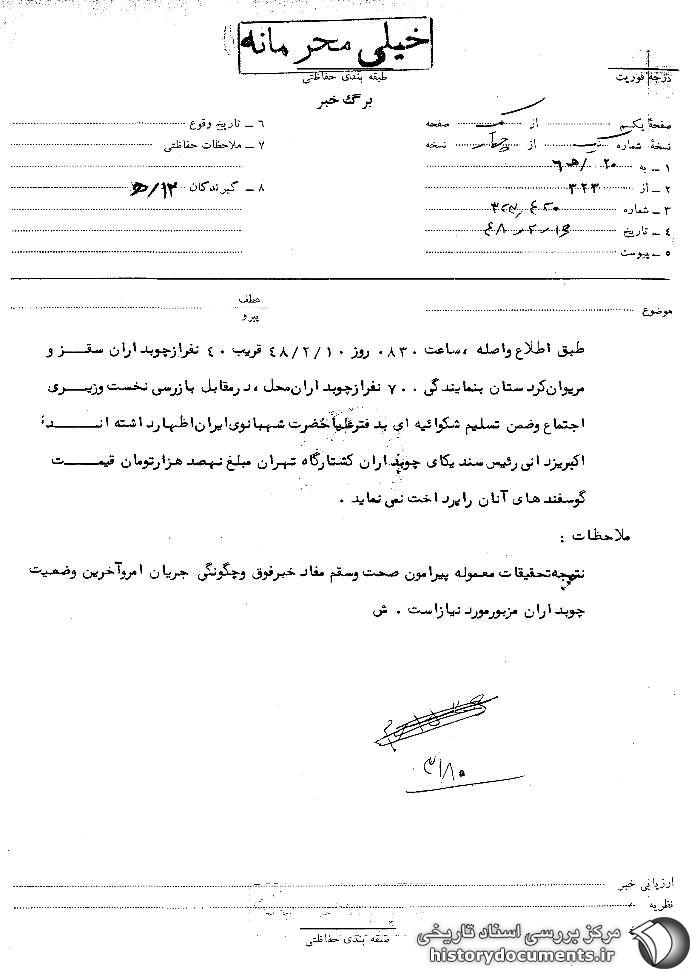 خیلی محرمانه
طبقه بندی حفاظتی
درجه فوریت
برگ خبر
صفحه یکم از یک صفحه
نسخه شماره یک از چهار نسخه
۱ ـ به ۲۰ / ه ۶
۲ ـ از ۳۲۳
۳ ـ شماره
۴ ـ تاریخ
۵ ـ پیوست
۶ ـ تاریخ وقوع
۷ ـ ملاحظات حفاظتی
۸ ـ گیرندگان ۱۲/ه
موضوع
عطف
پیرو
طبق اطلاع واصله ، ساعت ۰۸۳۰ روز ۴۸/۲/۱۰ قریب ۴۰ نفر از چوبداران سقز و
مریوان کردستان بنمایندگی ۷۰۰ نفر از چوبداران محل ، در مقابل بازرسی نخست وزیری
اجتماع و ضمن تسلیم شکوائیه ای بدفتر علیاحضرت شهبانوی ایران اظهار داشته اند :
اکبر یزدانی رئیس سندیکای چوبداران کشتارگاه تهران مبلغ نهصد هزار تومان قیمت
گوسفند های آنان را پرداخت نمی نماید .
ملاحظات :
نتیجه تحقیقات معموله پیرامون صحت و سقم مفاد خبر فوق و چگونگی جریان امر و آخرین وضعیت
چوبداران مزبور مورد نیاز است . ش
۳۱۸۰
ارزیابی خبر
نظریه
طبقه بندی حفاظتی
مرکز بررسی اسناد تاریخی
historydocuments.ir